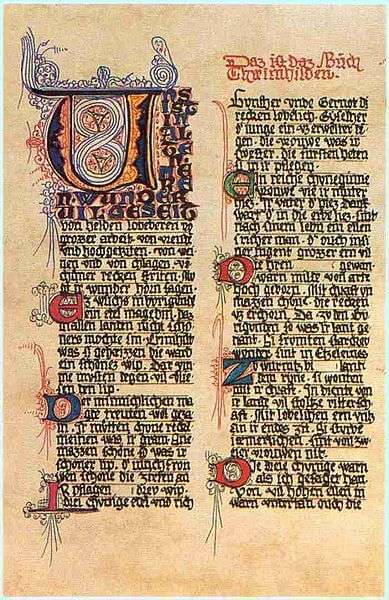 UNS
IST
IN AL
TEN
MÆRE
N WUNDER
VIL GESEIT
von helden lobeberen vo
grozer arbeit von vreude
vnd hochgeziten. von wei
nen vnd von chlagen vo
chuner recken striten. Mv
get ir wunder horn sagen.
Ez wuchs in burigunde
ein etel magedin. daz
in allen landen nicht scho
ners mochte sin. Crimhilt
was si geheizzen die ward
ein schönes wip. Dar vm
die mvsten degen vil flie
sen den lip.
Der minniclichen ma
get treuten wol geza
m. ir mvtten chone recke
niemen was ir gram. Ane
mazzen schöne so was ir
schöner lip. D
wen schone die zirten an
Ir pflagen drey
drei chunige edel und rich
Daz ist daz Buch
Chreimhilden.
Gunther unde Gernot di
recken lobelich. Gyselher
d' iunge ein uz erwelter de
gen. die vrouwe was ir
swester. die fursten heten
si in ir pflegen.
Ein reiche chuniginne
vrouwe vte ir mvter
hiez. ir vater d' hiez Danc
wart d' in die erbe liez. sint
nach sinem lebn ein ellen
richer man. d' ouch in si
ner iugent grozer ern vil
gewan.
waren milte von art
hoch geborn. Mit chraft vn
mazzen chone. die recken
uz erchorn. Da zv den Bu
rigonden so was ir lant ge
nant. Si frumten starckev
wunder sint in Etzelen lant.
Ze wurmtz bi
dem ryne. si wonten
mit ir chraft. In dienet von
ir lande vil stolze ritter
schaft. Mit lobelichen ern vntz
an ir endes zit. Si sturbe
iemerlichen sint von zwei
er vrouwen nit.
Die drie chunige warn
als ich gesaget han.
von vil hohen ellen in
warn vndertan ouch die